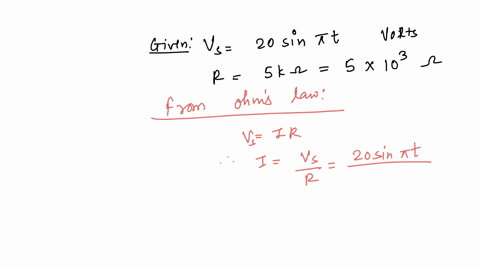 Given: Vs = 20 sin πt Volts
R = 5kΩ = 5 × 10³ Ω
from ohm's law:
Vs = IR
∴ I = Vs/R = 20 sin πt